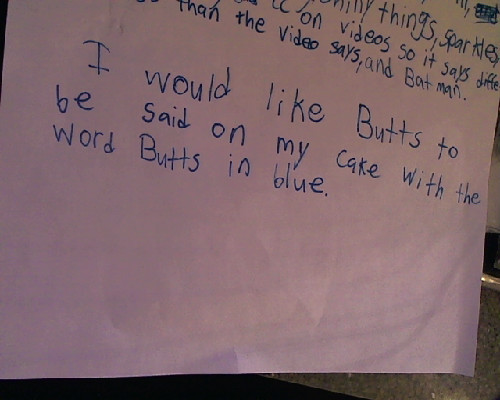 shiny things, sparkles,
on videos so it says diffe
than the video says, and Batman.
I would like Butts to
be said on my cake with the
word Butts in blue.